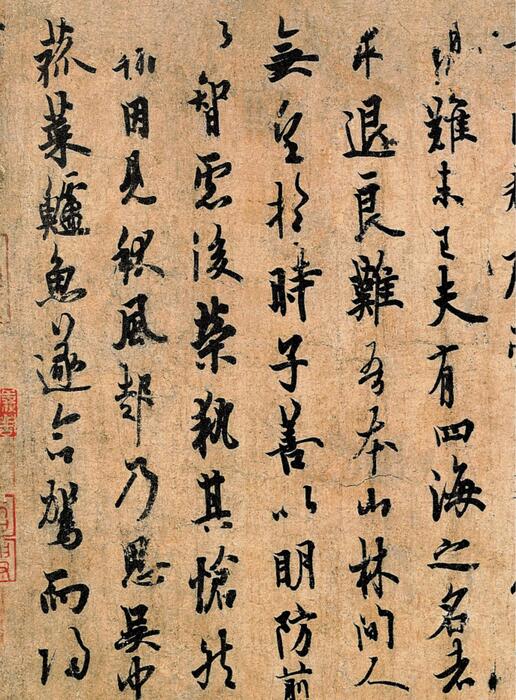 禍難未已夫有四海之名者
求退良難吾本山林間人
無望於時子善以明防前
以智慮後榮執其愴然
翰因見秋風起乃思吳中
菰菜鱸魚遂命駕而歸